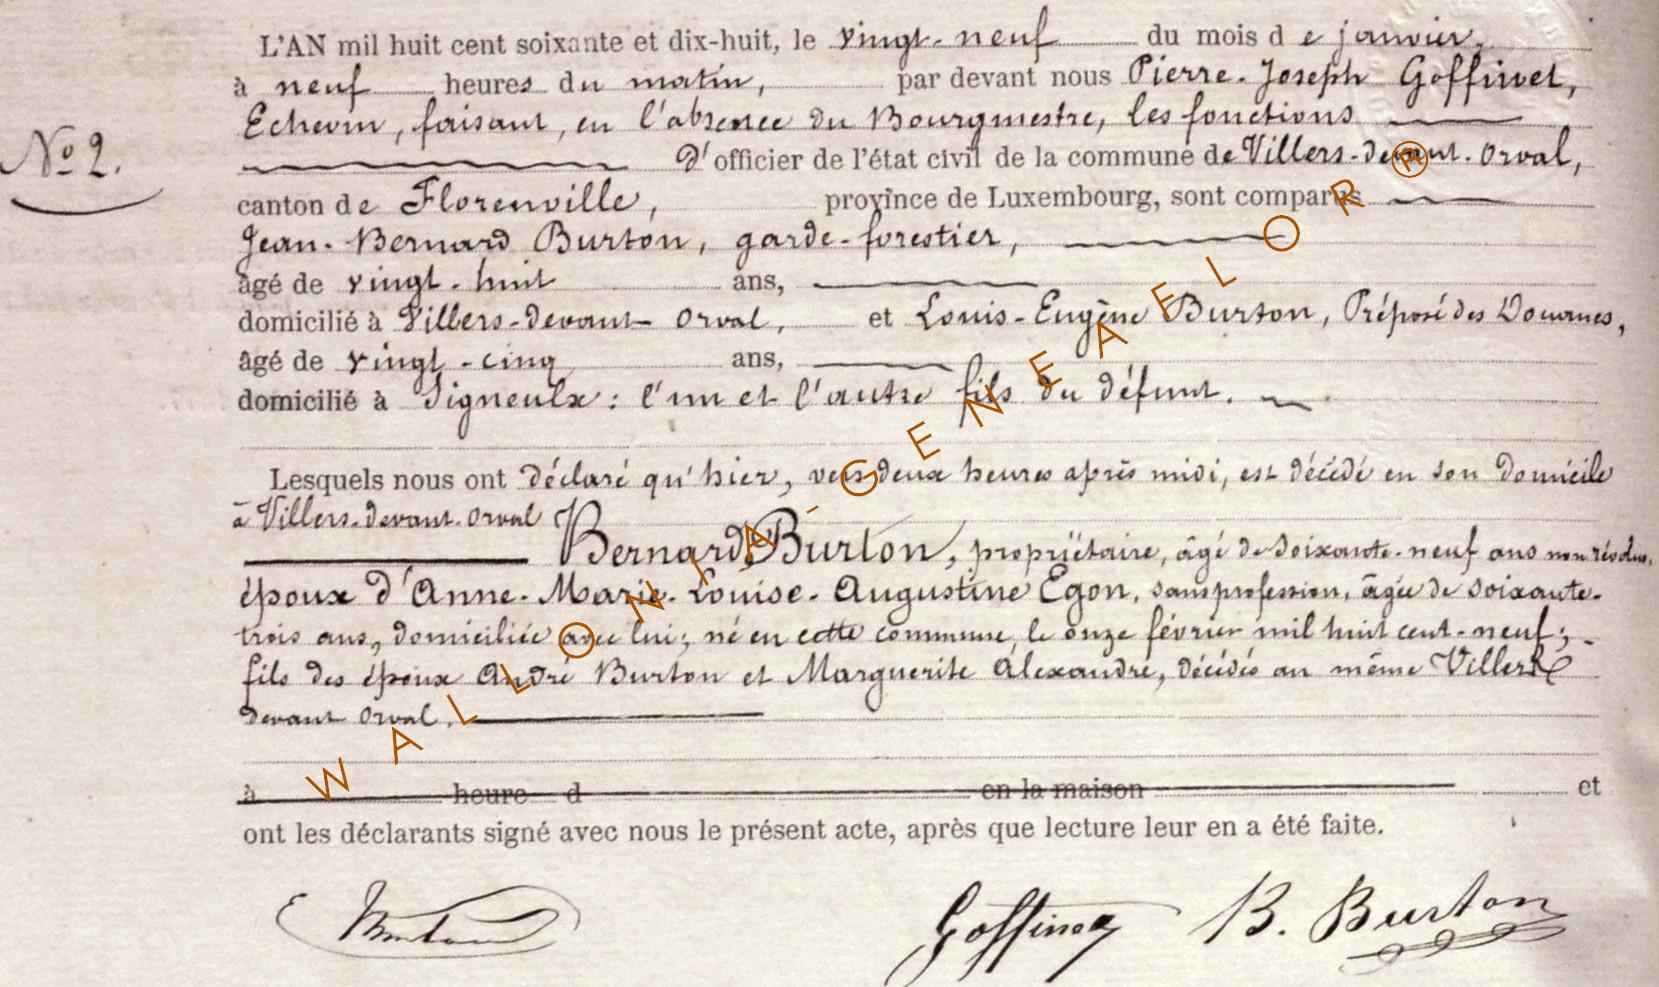 L'AN mil huit cent soixante et dix-huit, le vingt-neuf du mois d e janvier,
à neuf heures du matin, par devant nous Pierre-Joseph Goffinet,
Echevin, faisant, en l'absence du Bourgmestre, les fonctions
No 2.
d'officier de l'état civil de la commune de Villers-devant-Orval,
canton de Florenville, province de Luxembourg, sont comparus
Jean-Bernard Burton, garde-forestier,
âgé de vingt-huit ans,
domicilié à Villers-devant-Orval, et Louis-Eugène Burton, Préposé des Douanes,
âgé de vingt-cinq ans,
domicilié à Signeulx : l'un et l'autre fils du défunt.
Lesquels nous ont déclaré qu'hier, vers deux heures après midi, est décédé en son domicile
à Villers-devant-Orval
Bernard Burton, propriétaire, âgé de soixante-neuf ans non révolus,
époux d'Anne-Marie-Louise-Augustine Egon, sans profession, âgée de soixante-
trois ans, domiciliée avec lui; né en cette commune, le onze février mil huit cent-neuf;
fils des époux André Burton et Marguerite Alexandre, décédés au même Villers
devant Orval.
à heure d en la maison et
ont les déclarants signé avec nous le présent acte, après que lecture leur en a été faite.
Burton Goffinet B. Burton
WALLONIA-GENEAELOR®